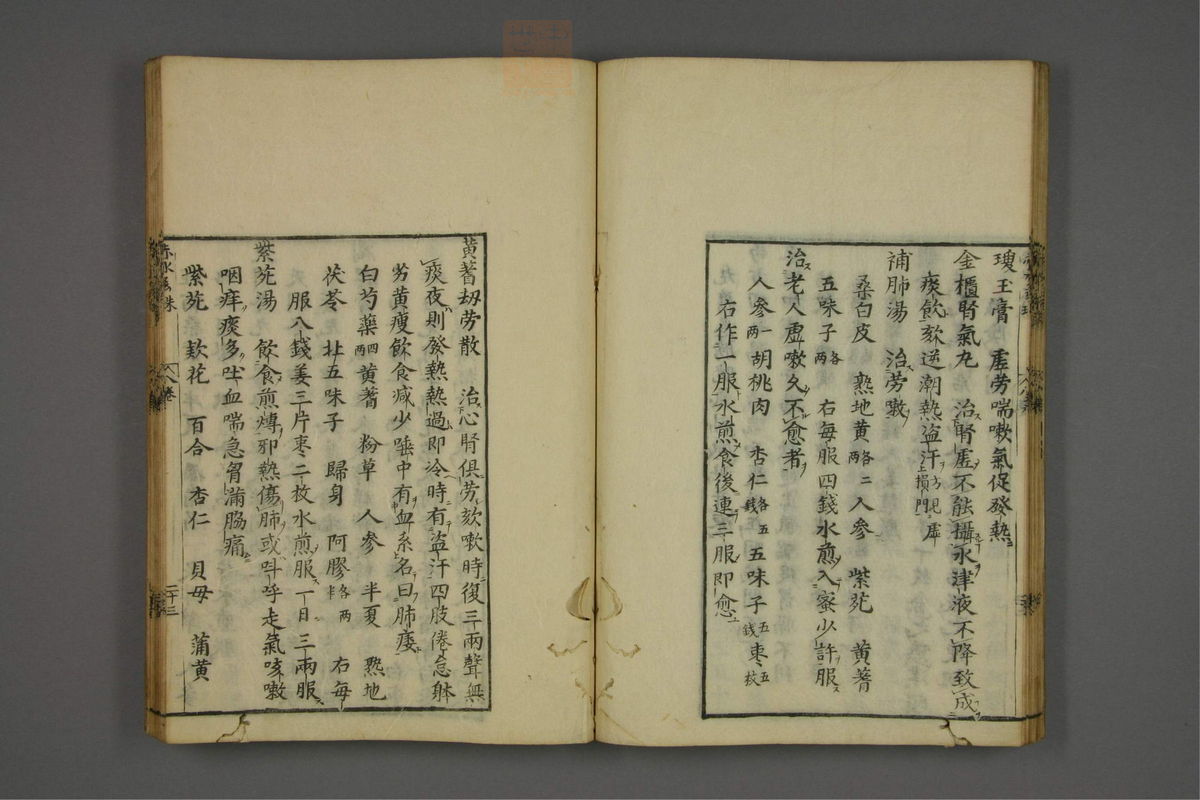 瓊玉膏 虚労喘嗽氣促發熱
金櫃腎氣丸 治腎虚不能攝水津液不降致成
痰飲欬逆潮熱盗汗方見虚損門
補肺湯 治労嗽
桑白皮 熟地黄各二兩 人參 紫菀 黄蓍
五味子各兩 右毎服四錢水煎入蜜少許服
治老人虚嗽久不愈者
人參一兩 胡桃肉 杏仁各五錢 五味子五錢 棗五枚
右作一服水煎食後連三服即愈
黄蓍劫労散 治心腎俱労欬嗽時復三兩聲無
痰夜則發熱熱過即冷時有盗汗四肢倦怠躰
劣黄瘦飲食減少唾中有血系名曰肺痿
白芍藥四兩 黄蓍 粉草 人參 半夏 熟地
茯苓 北五味子 歸身 阿膠各兩半 右毎
服八錢姜三片棗二枚水煎服一日三兩服
紫菀湯 飲食煎煿邪熱傷肺或呌呼走氣咳嗽
咽痒痰多吐血喘急胷滿脇痛
紫菀 欵花 百合 杏仁 貝母 蒲黄
赤水玄珠 八卷 二十三